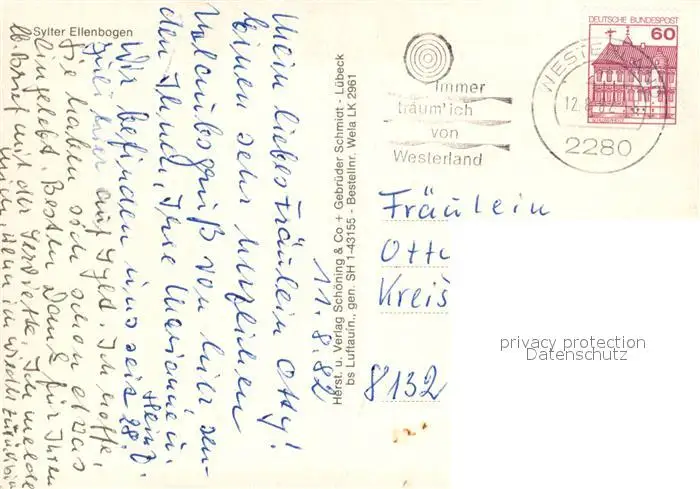 Sylter Ellenbogen
11.8.82
Mein liebes Fräulein Otty!
Einen sehr herzlichen
Urlaubsgruß von hier sen-
den Ihnen, Ihre Marianne u.
Heinz.
Wir befinden uns seit 28.7.
hier auf Sylt. Ich hoffe,
Sie haben sich schon etwas
eingelebt. Besten Dank für Ihren
lb. Brief mit der Serviette. Ich melde
mich, wenn im wieder zurück bin
Herst. u. Verlag Schöning & Co + Gebrüder Schmidt - Lübeck
bs Luftaufn., gen. SH 1-43155 - Bestellnr. Wela LK 2961
Immer
träum' ich
von
Westerland
WESTE
12.8.82
2280
DEUTSCHE BUNDESPOST
60
Fräulein
Otti
Kreis
8132
privacy protection
Datenschutz